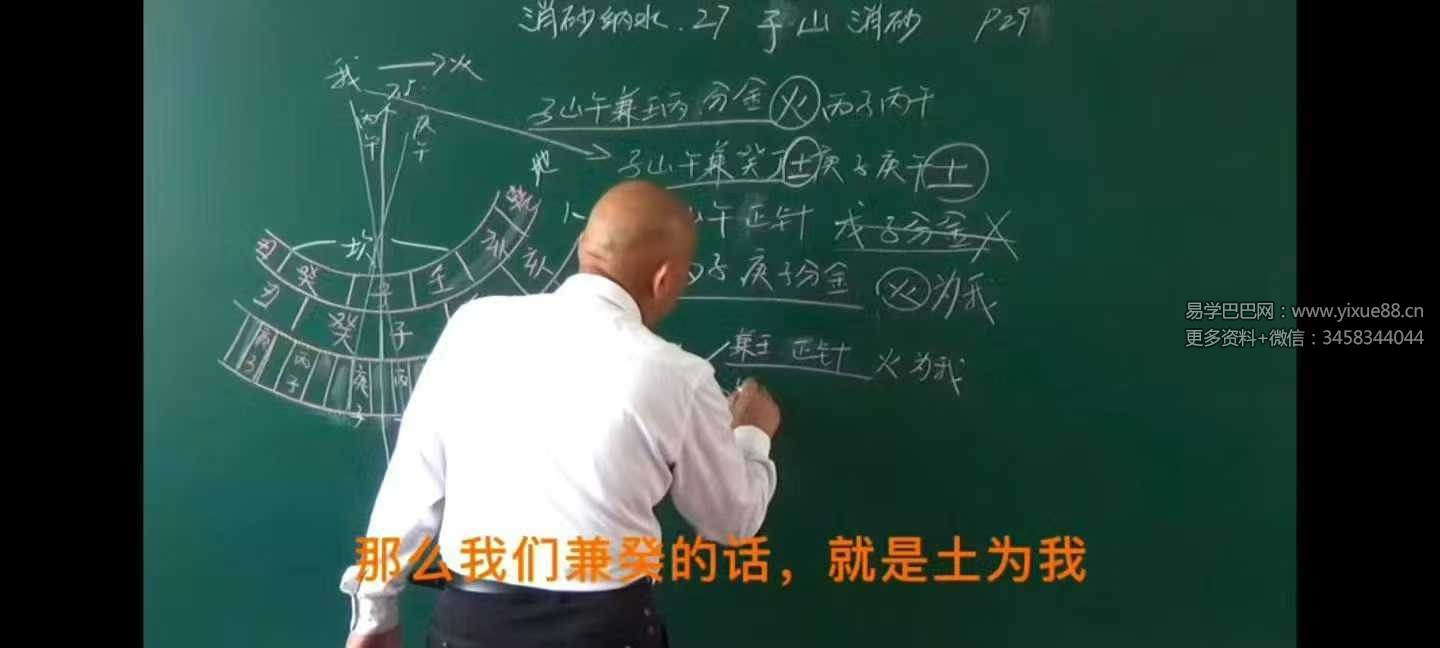 消砂纳水.27 子山消砂 P29
我 → 火
7.5.
丙午
庚午
子山午兼壬丙分金火丙子丙午
地
子山午兼癸丁土庚子庚午土
人
山午正针 戊子分金
子庚子分金 火为我
兼壬 正针 火为我
坎
丑 癸 子 壬 亥 乾
丑 癸 子 亥
丙子 庚子 丙
易学巴巴网：www.yixue88.cn
更多资料+微信：3458344044
那么我们兼癸的话，就是土为我